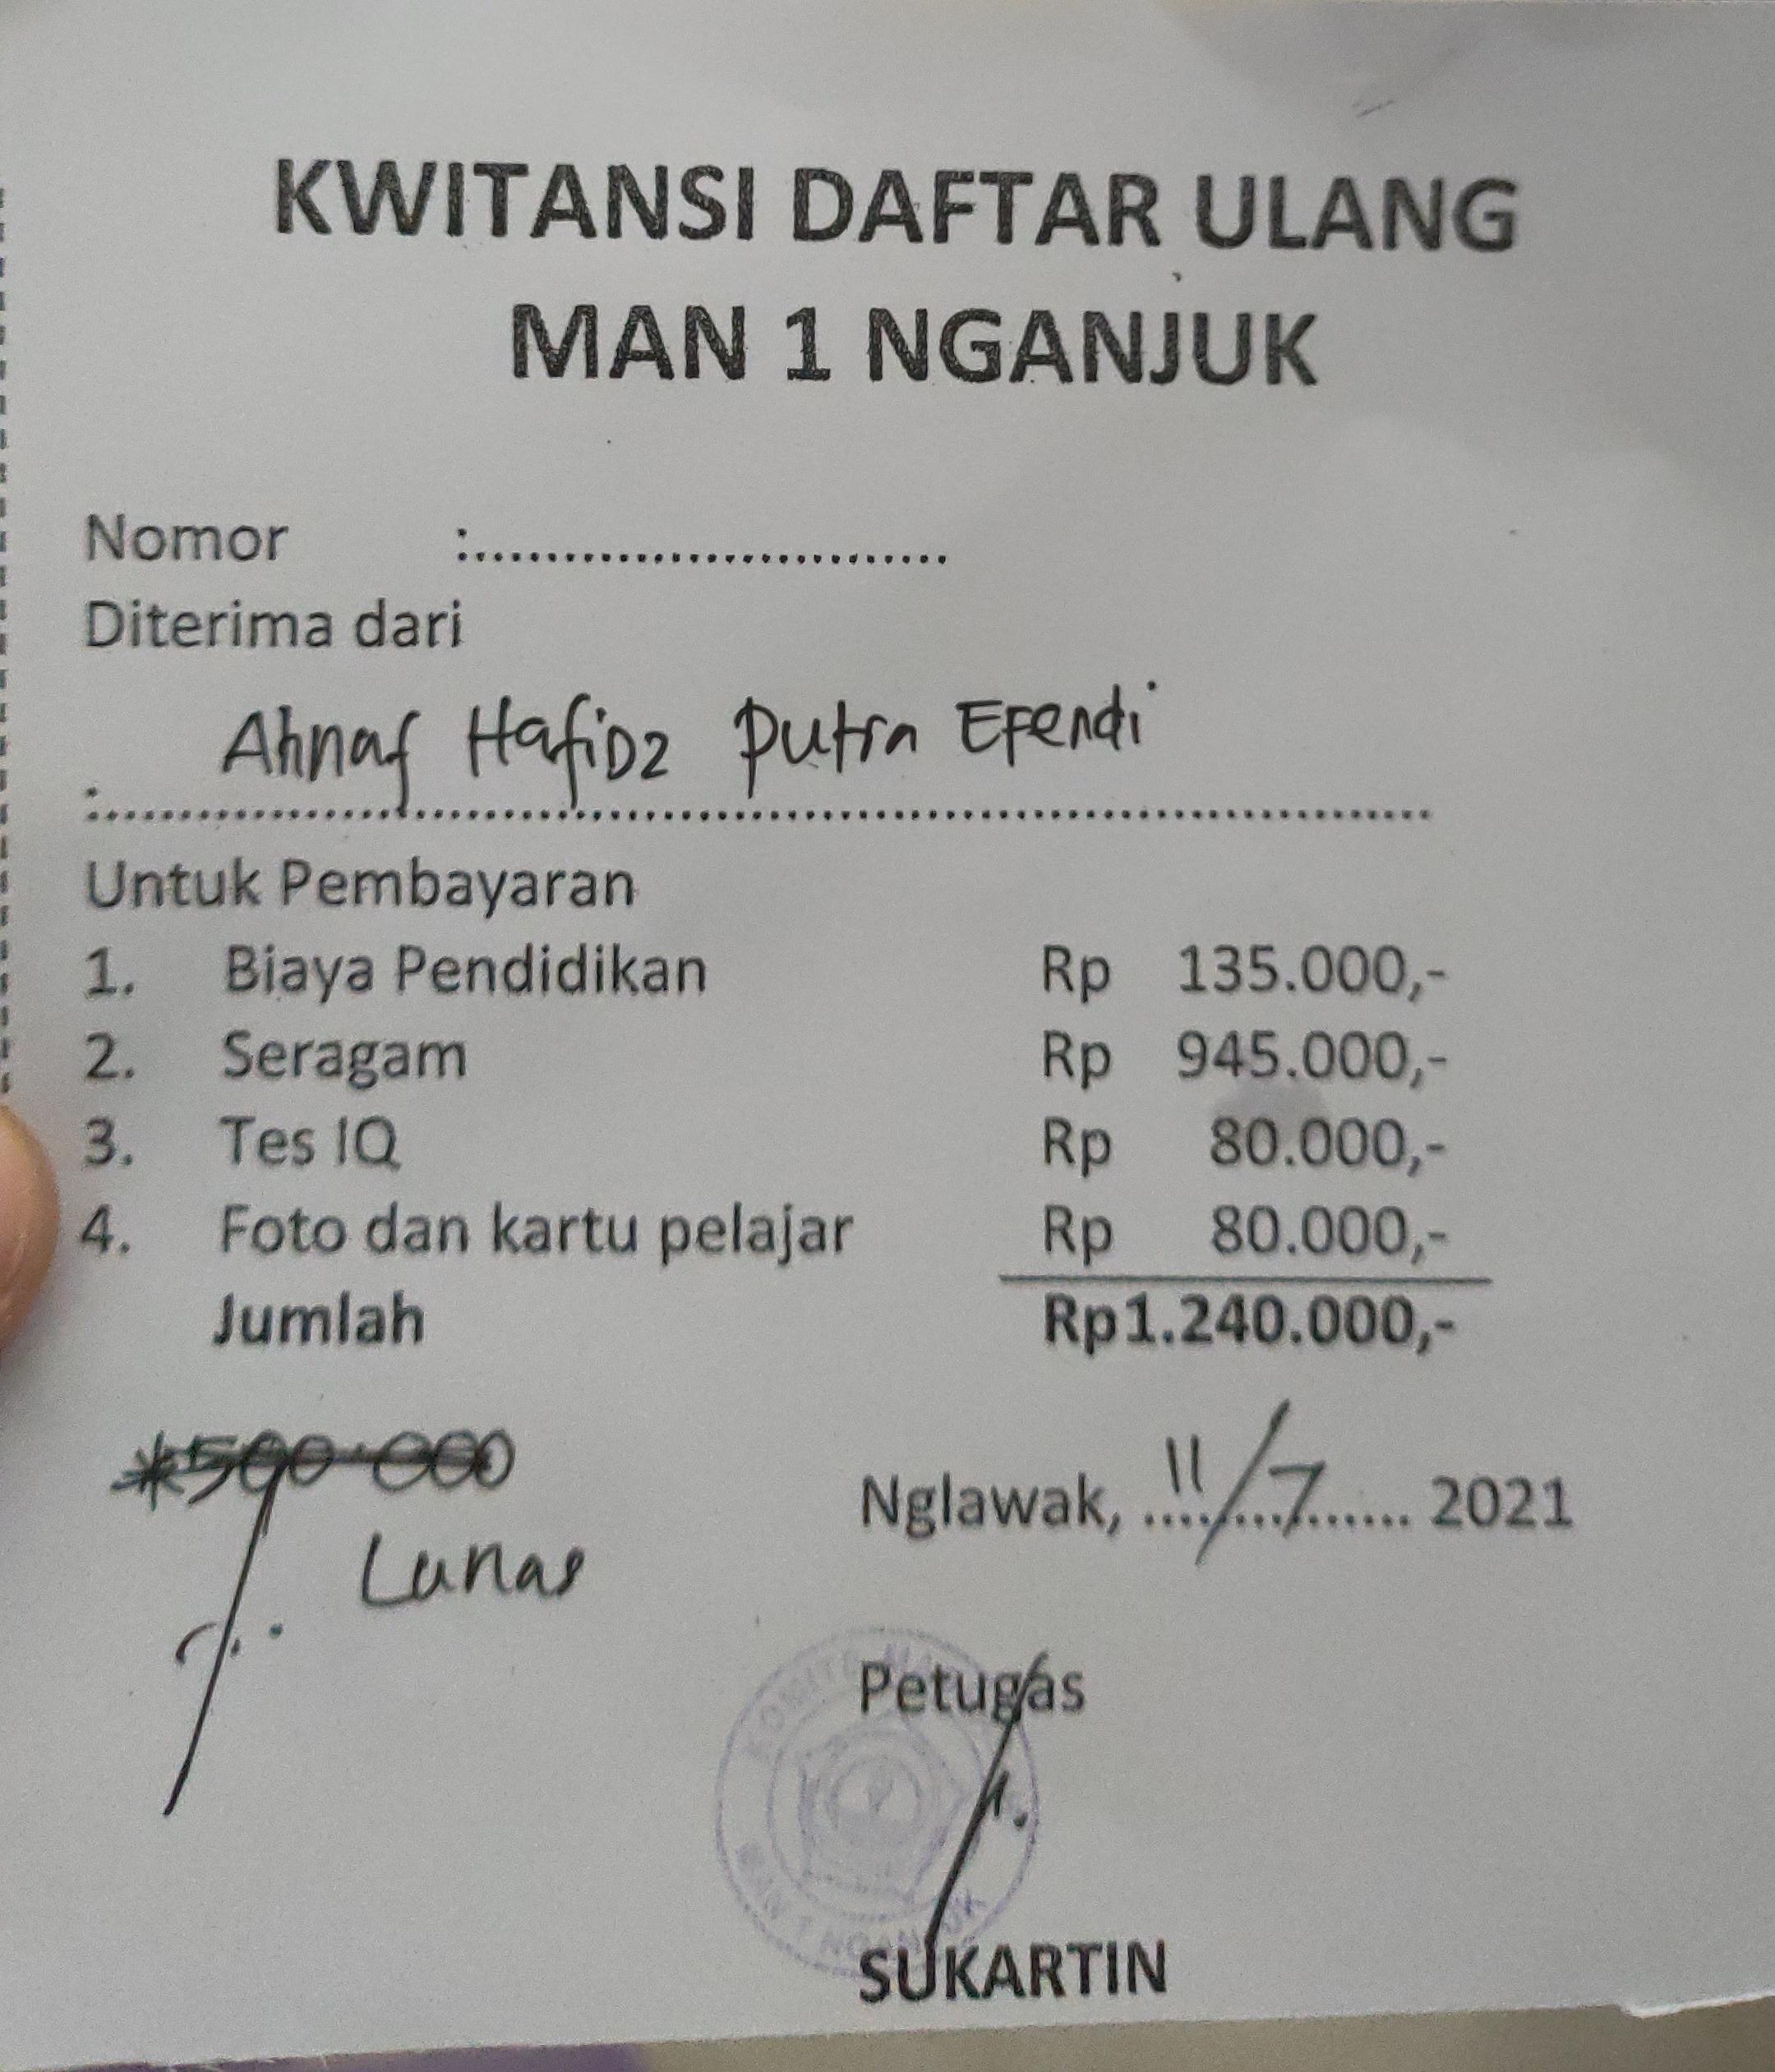 KWITANSI DAFTAR ULANG
MAN 1 NGANJUK
Nomor :.............................
Diterima dari
Ahnaf Hafidz Putra Efendi
:......................................................................................
Untuk Pembayaran
1. Biaya Pendidikan Rp 135.000,-
2. Seragam Rp 945.000,-
3. Tes IQ Rp 80.000,-
4. Foto dan kartu pelajar Rp 80.000,-
Jumlah Rp1.240.000,-
*500.000
Nglawak, 11/7 2021
Lunas
Petugas
KOMITE
MAN 1 NGANJUK
SUKARTIN